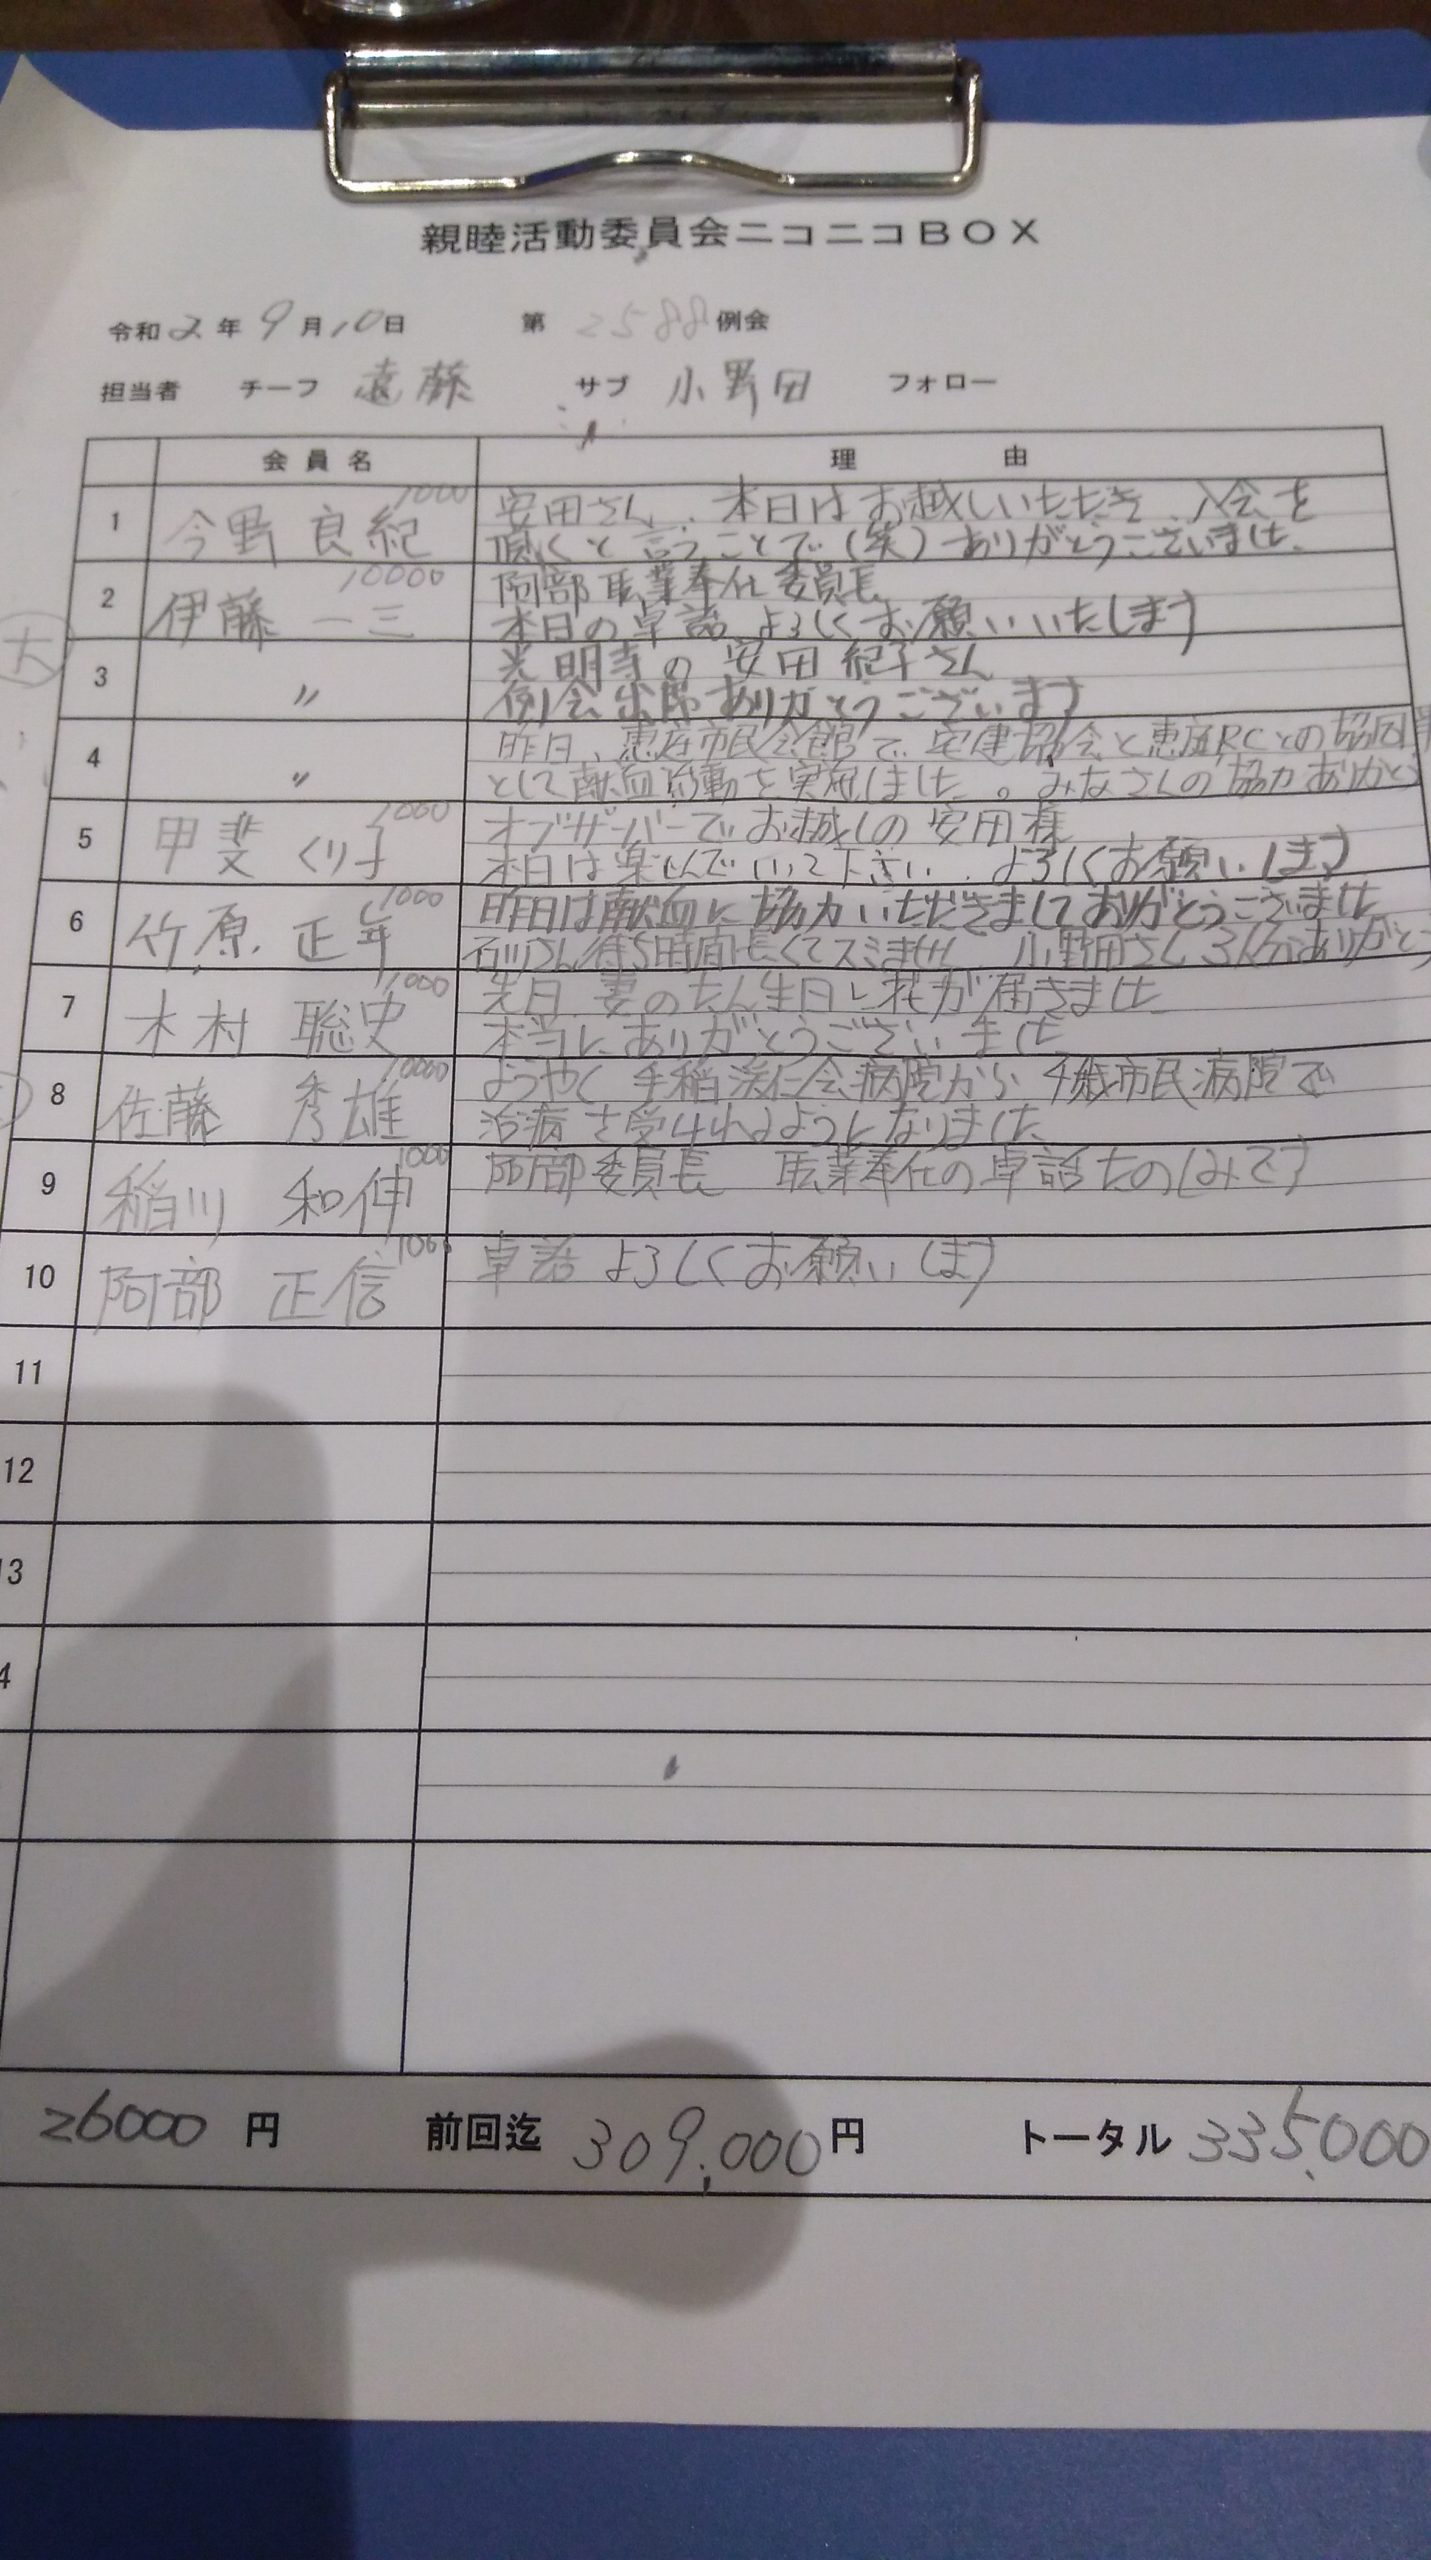 親睦活動委員会ニコニコBOX
令和2年9月10日 第2588例会
担当者 チーフ 遠藤 サブ 小野田 フォロー
会員名 理由
1 今野良紀 1000 安田さん、本日はお越しいただき、入会を
頂くと言うことで(笑)ありがとうございました、
2 伊藤一三 10000 阿部職業奉仕委員長
本日の卓話よろしくお願いいたします
大
3 〃 光明寺の安田紀子さん
例会出席ありがとうございます
4 〃 昨日、恵庭市民会館で安建協会と恵庭RCとの協同
として献血活動を実施しました。みなさんの協力ありがとう
5 甲斐くり子 1000 オブザーバーでお越しの安田様
本日は楽しんでいって下さい、よろしくお願いします
6 竹原正年 1000 昨日は献血に協力いただきましてありがとうございました
石川さん待ち時間長くてスミません、小野田さん3人分ありがとう
7 木村聡史 1000 先日妻のたん生日に花が届きました
本当にありがとうございました
8 佐藤秀雄 10000 ようやく手稲渓仁会病院から千歳市民病院で
治病を受けれるようになりました
9 稲川和伸 1000 阿部委員長 職業奉仕の卓話たのしみです
10 阿部正信 1000 卓話よろしくお願いします
11
12
13
4
26000円 前回迄 309,000円 トータル 335,000